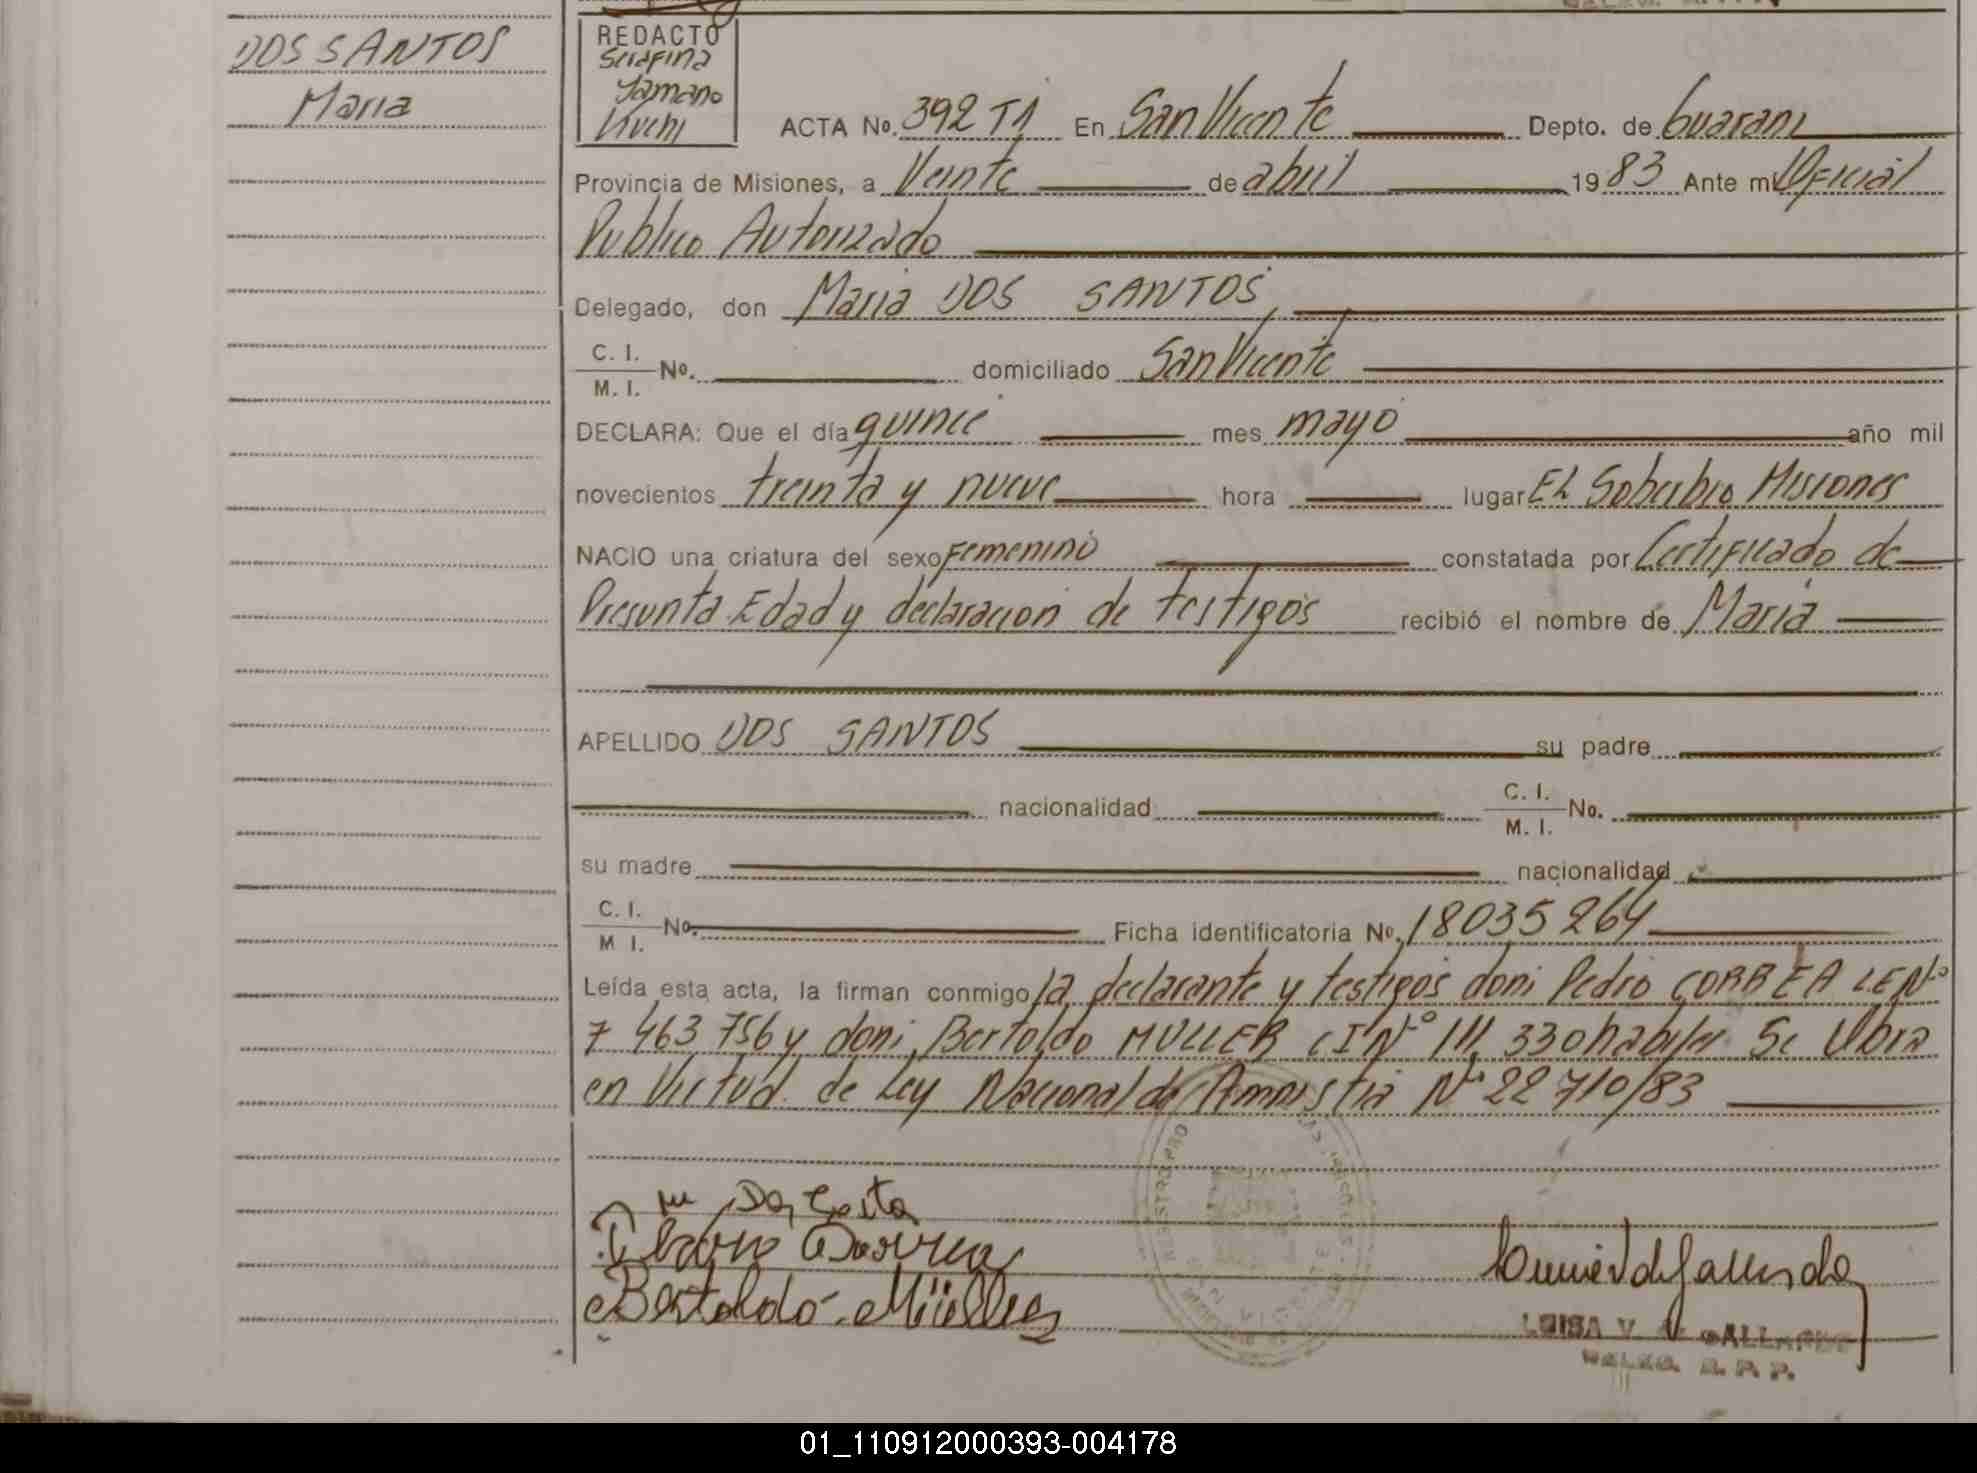 DOS SANTOS
Maria
REDACTO
Serafina
Yamano
Kuchi
ACTA No. 392 T1 En San Vicente Depto. de Guarani
Provincia de Misiones, a Veinte de abril 1983 Ante mi Oficial
Publico Autorizado
Delegado, don Maria DOS SANTOS,
C. I.
M. I. No. domiciliado San Vicente
DECLARA: Que el día quince mes mayo año mil
novecientos treinta y nueve hora lugar El Soberbio Misiones
NACIO una criatura del sexo Femenino constatada por Certificado de
Presunta Edad y declaracion de testigos recibió el nombre de Maria
APELLIDO DOS SANTOS su padre
nacionalidad C. I.
M. I. No.
su madre nacionalidad
C. I.
M I. No. Ficha identificatoria No. 18035264
Leída esta acta, la firman conmigo la declarante y testigos don: Pedro CORREA LE Nº
7 463 756 y don: Bertoldo MULLER CI Nº 111 330 habiles Se Labra
en Virtud de Ley Nacional de Amnistia Nº 22 710/83
Bertoldo Müller
LUISA V. GALLARDO
DELEG. R. P. P.
01_110912000393-004178